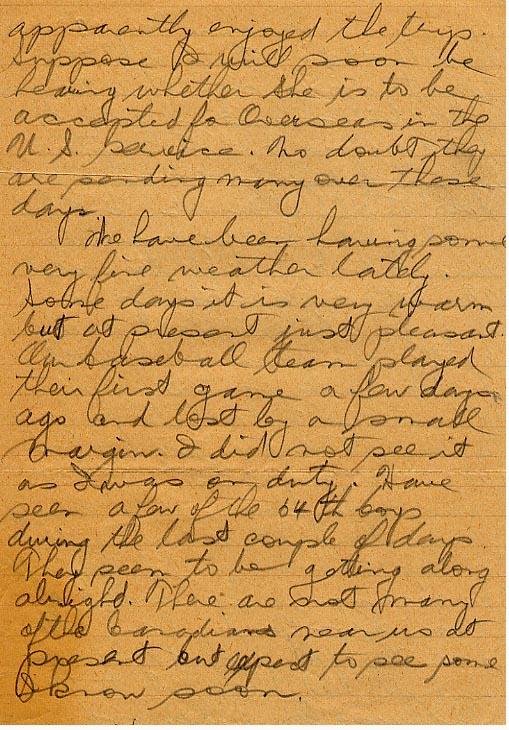 apparently enjoyed the trip.
Suppose I will soon be
hearing whether she is to be
accepted for Overseas in the
U.S. Service. No doubt they
are sending many over these
days.
We have been having some
very fine weather lately.
Some days it is very warm
but at present just pleasant.
Our baseball team played
their first game a few days
ago and lost by a small
margin. I did not see it
as I was on duty. Have
seen a few of the 64th boys
during the last couple of days
They seem to be getting along
alright. There are not many
of the Canadians near us at
present but expect to see some
I know soon.